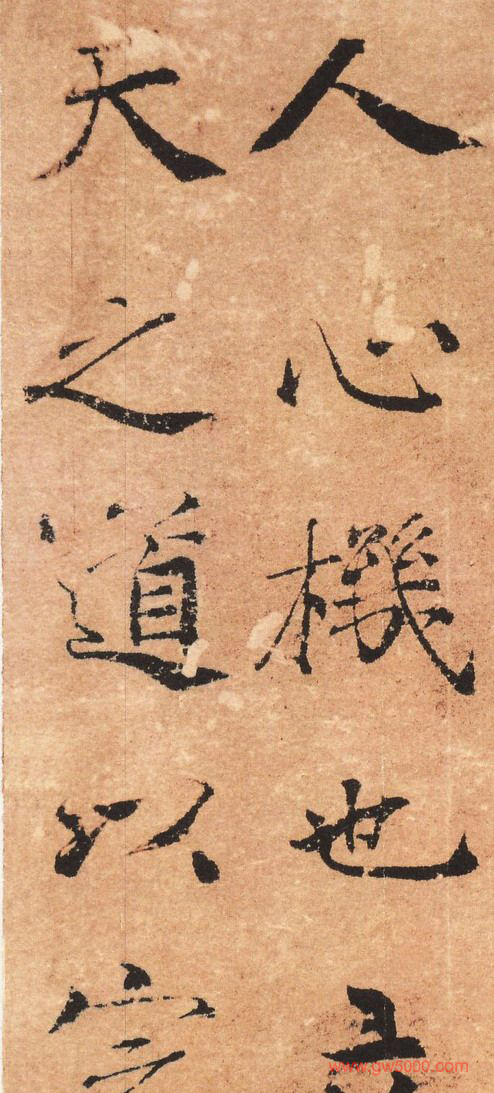 人心機也立
天之道以定
www.gw5000.com